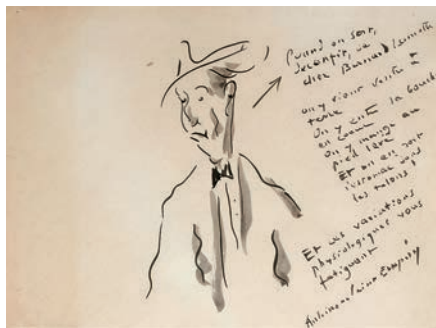 Quand on sort,
déconfit, de
chez Bernard Lamotte
on y vient ventre à
terre
On y entre la bouche
en coeur
on y mange au
pied levé
Et on en sort
l'estomac dans
les talons!
Et ces variations
physiologiques vous
fatiguent
Antoine de Saint-Exupéry